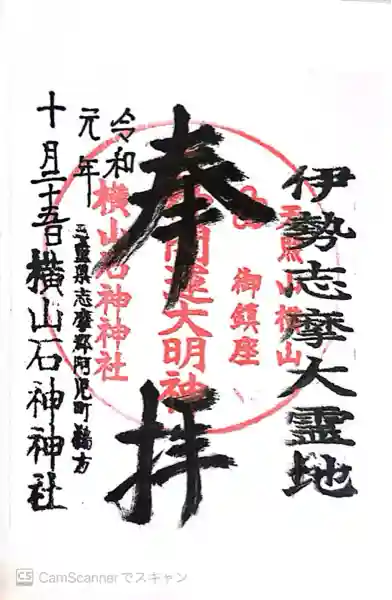 伊勢志摩大霊地
奉拝
御鎮座
大明神
横山石神神社
令和
元年
三重県志摩郡阿児町鵜方
十月二十五日横山石神神社
CS CamScannerでスキャン